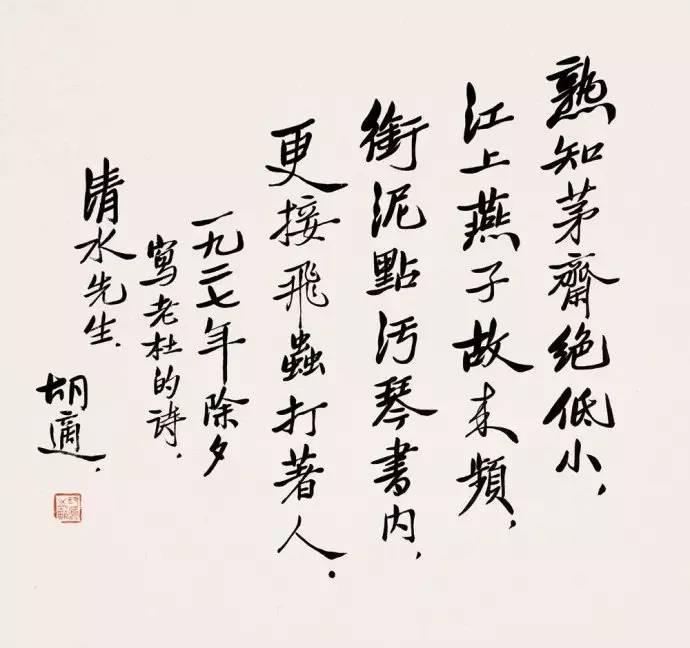 熟知茅齋絶低小，
江上燕子故来頻，
銜泥點汚琴書内，
更接飛蟲打著人．
一九二七年除夕
寫老杜的诗．
清水先生．
胡適．